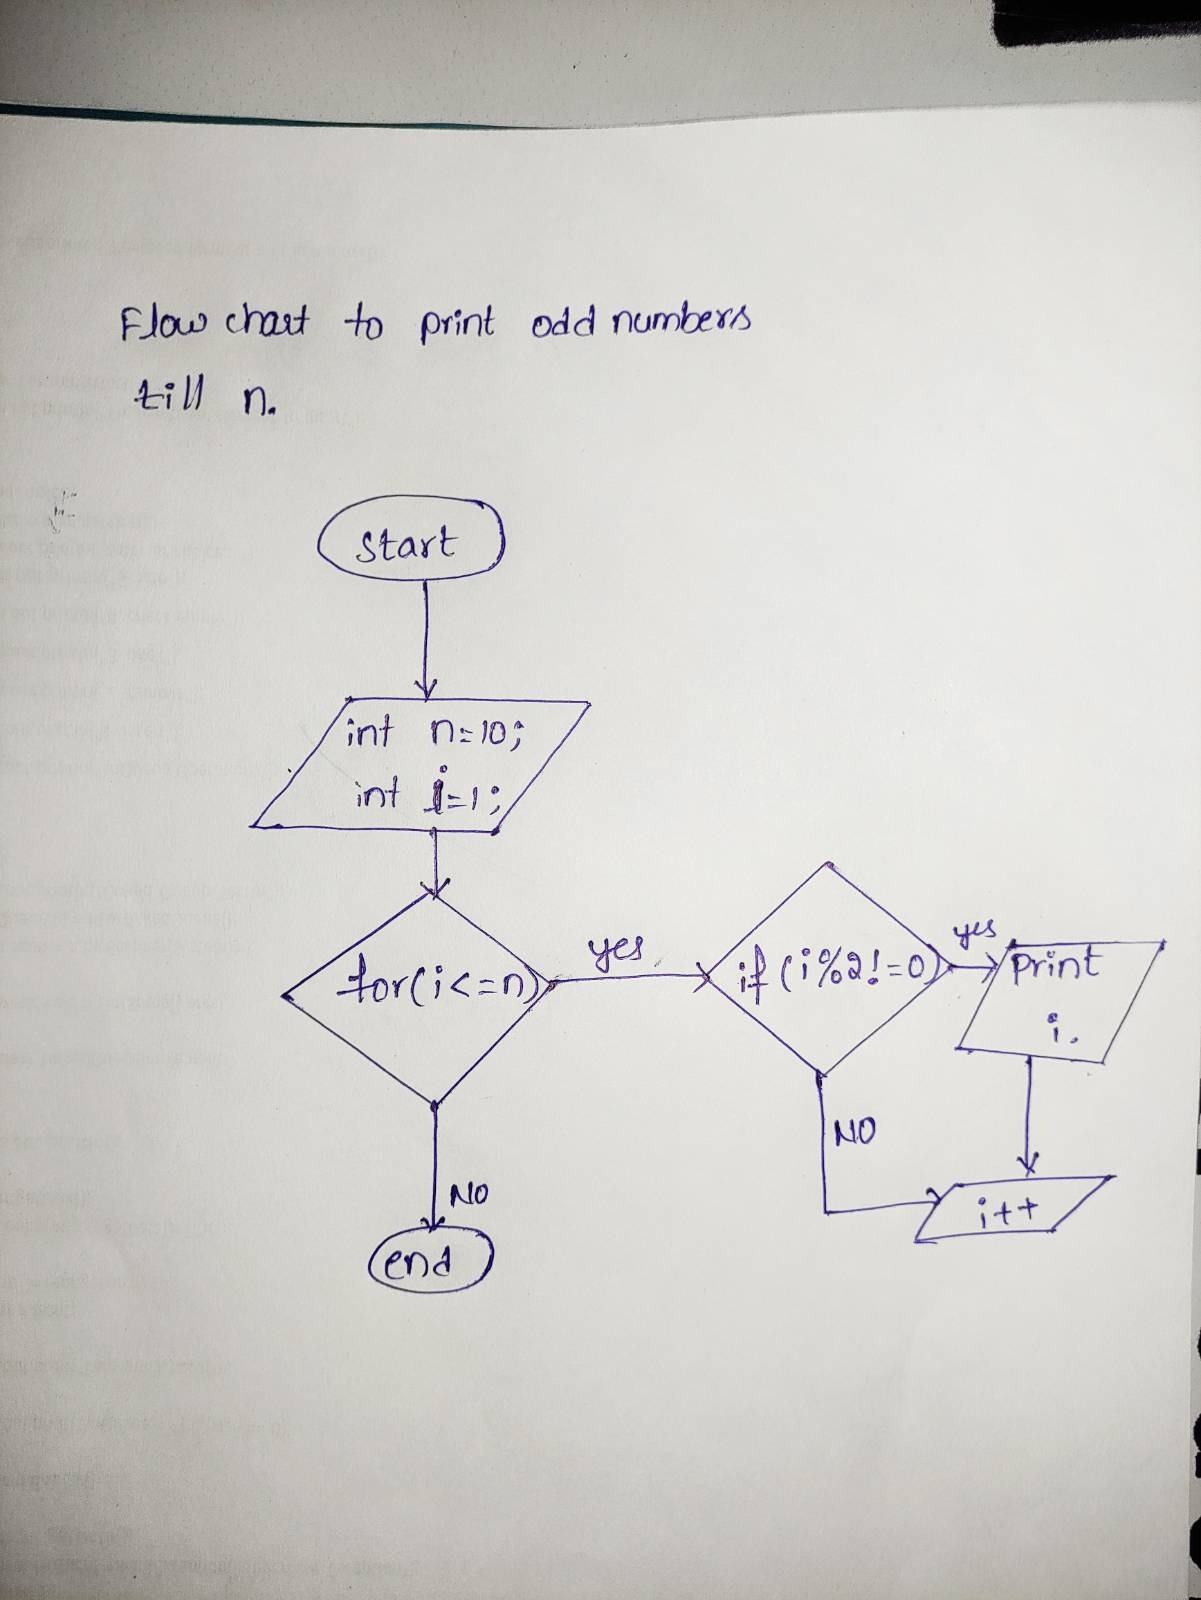 Flow chart to print odd numbers
till n.
start
int n=10;
int i=1;
for(i<=n)
yes
if (i%2!=0)
yes
print
i.
NO
i++
NO
end